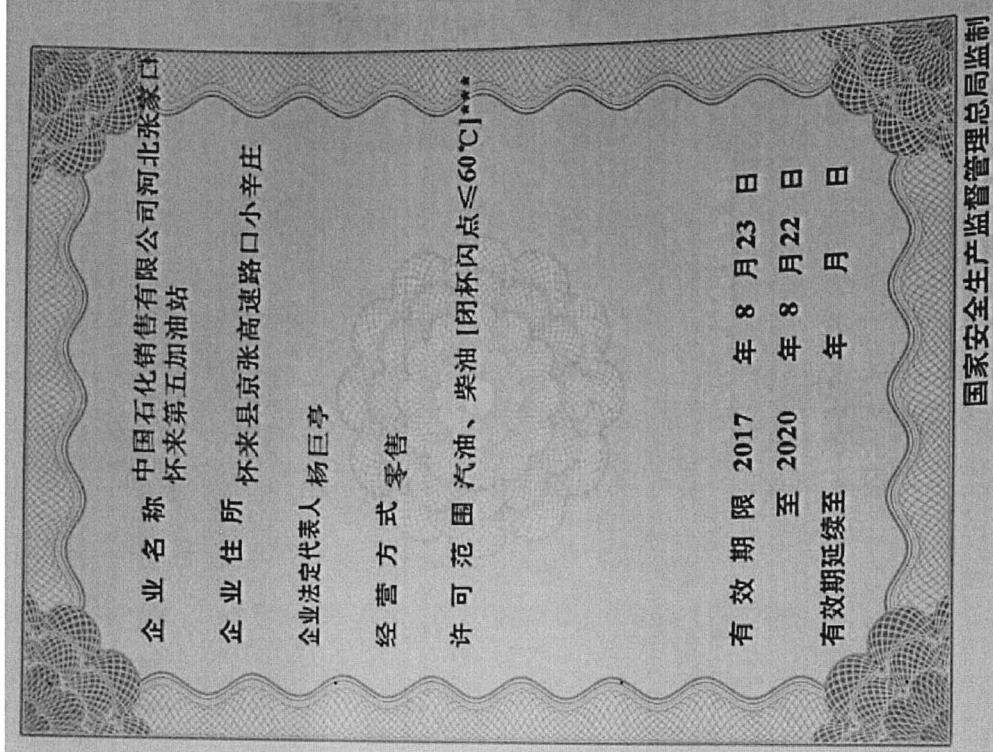 企业名称 中国石化销售有限公司河北张家口
怀来第五加油站
企业住所 怀来县京张高速路口小辛庄
企业法定代表人 杨巨亭
经营方式 零售
许可范围 汽油、柴油 [闭杯闪点≤60℃]***
有效期限 2017 年 8 月 23 日
至 2020 年 8 月 22 日
有效期延续至 年 月 日
国家安全生产监督管理总局监制